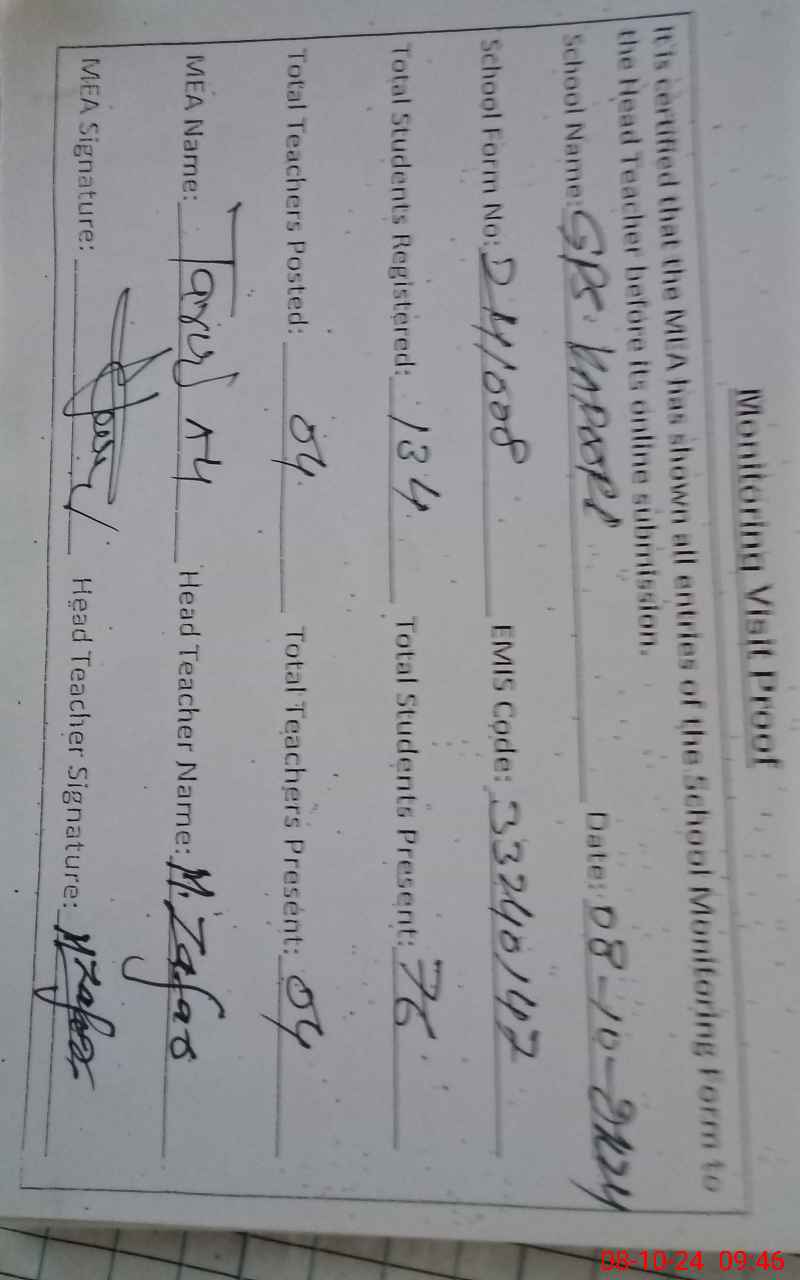 Monitoring Visit Proof
It is certified that the MEA has shown all entries of the School Monitoring Form to
the Head Teacher before its online submission.
School Name: GPS. Date: 08-10-2024
School Form No: D4/008 EMIS Code: 33240147
Total Students Registered: 134 Total Students Present: 76
Total Teachers Posted: 04 Total Teachers Present: 04
MEA Name: Head Teacher Name: M. Zafar
MEA Signature: Head Teacher Signature: M Zafar
08-10-24 09:46